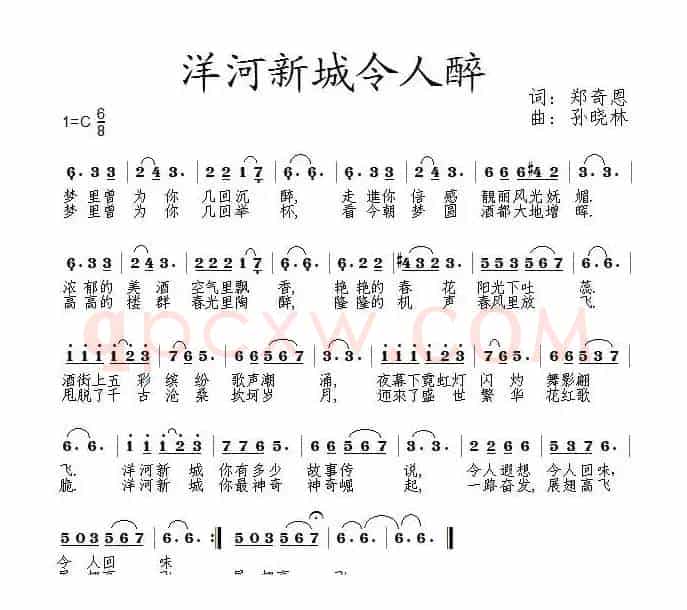 洋河新城令人醉
词：郑奇恩
1=C 6/8
曲：孙晓林
6. 3 3 | 2 4 3 | 2 2 1 7 | 6. 6. | 6. 3 3 | 2 4 3. | 6 6 6 #4 2 | 3. 3.
梦里曾 为你 几回沉 醉, 走進你 倍感 靓丽风光妩 媚.
梦里曾 为你 几回举 杯, 看今朝 梦圆 酒都大地增 晖.
6. 3 3 | 2 4 3. | 2 2 1 7 | 6. 6. | #4 3 2 3 | 2 3. | 5 5 3 5 6 7 | 6. 6. |
浓郁的 美酒 空气里飘 香, 艳艳的 春花 阳光下吐 蕊.
高高的 楼群 春光里陶 醉, 隆隆的 机声 春风里放 飞.
qpcxw.COM
1 1 1 1 2 3 | 7 6 5. | 6 6 5 6 7 | 3. 3. | 1 1 1 1 1 2 3 | 7 6 5. | 6 6 3 5 7 |
酒街上五 彩 缤 纷 歌声潮 涌, 夜幕下霓虹灯 闪 灼 舞影翩
甩脱了千 古 沧 桑 坎坷岁 月, 迊來了盛 世 繁 华 花红歌
6. 6. | 1 1 1 2 3 | 7 7 6 5 | 6 6 5 6 7 | 3. 3. | 2 2 2 2 | 6 6 6 6 |
飞. 洋河新 城 你有多少 故事传 说, 令人遐想 令人回味,
脆. 洋河新 城 你最神奇 神奇崛 起, 一路奋发, 展翅高飞
5 0 3 5 6 7 | 6. 6. :| 5 0 3 5 6 7 | 6. 6. | 6. 6. ‖
令 人回 味